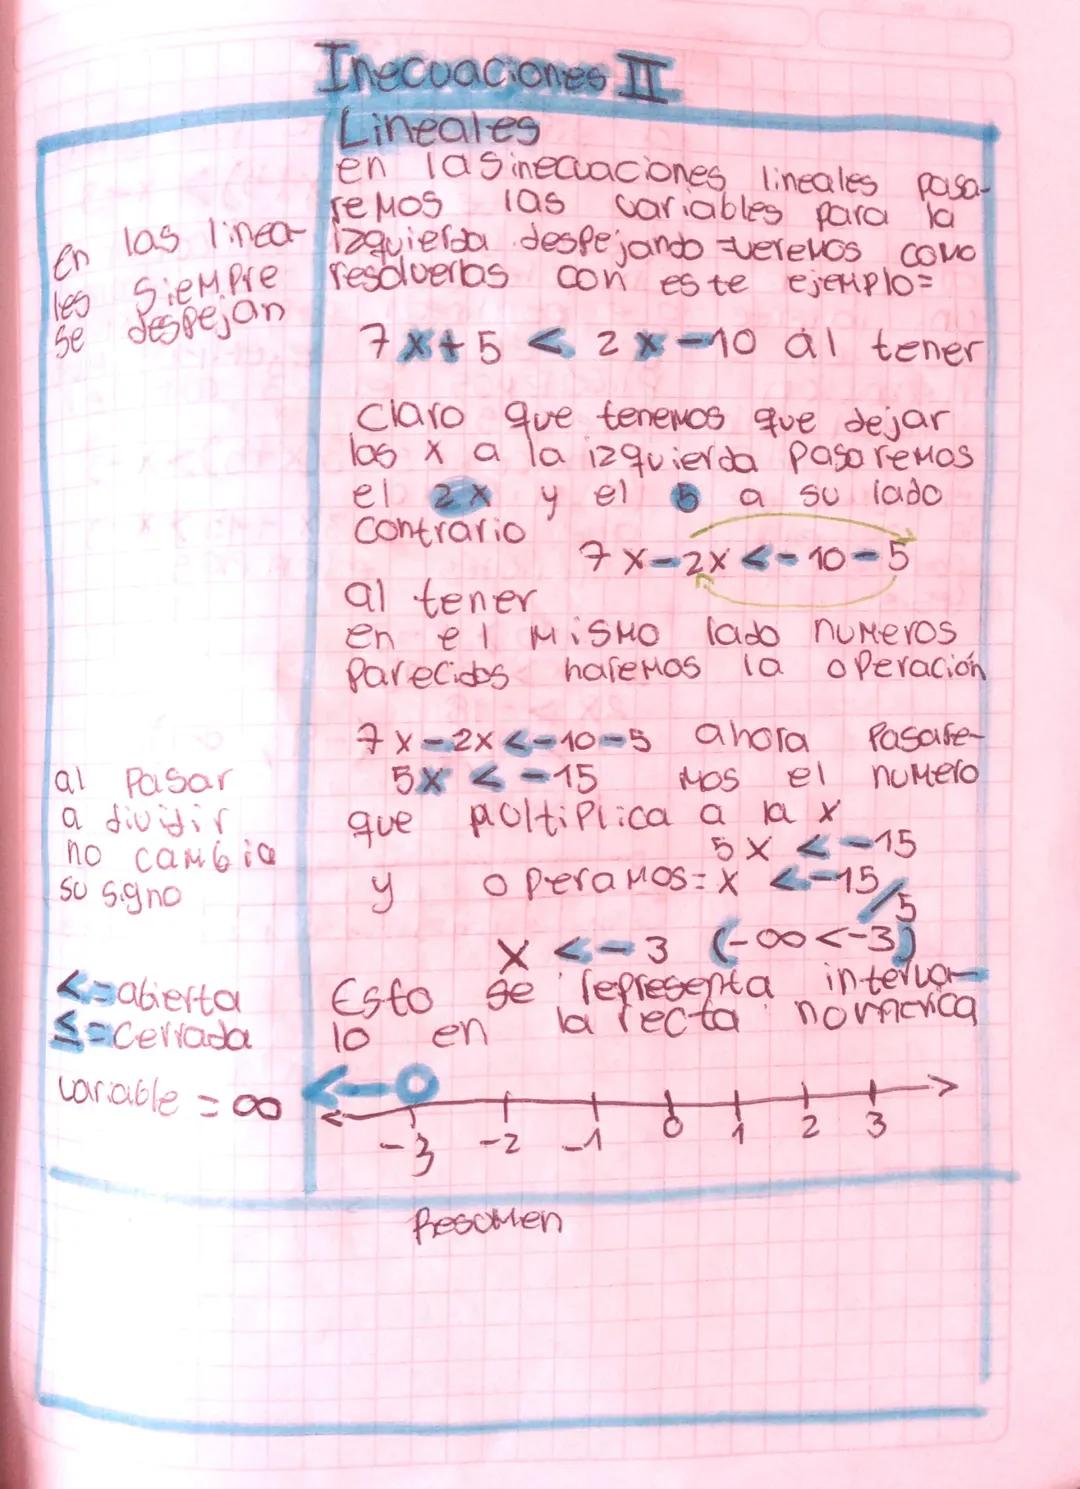 Inecuaciones II
Lineales
en las inecuaciones lineales pasa-
remos las variables para la
izquierda despejando veremos como
resolverlas con este ejemplo=
En las linea-
les siempre
se despejan
7x+5 < 2x-10 al tener
Claro que tenemos que dejar
las x a la izquierda pasaremos
el 2x y el 5 a su lado
contrario
7x-2x<-10-5
al tener
en el mismo lado numeros
parecidos haremos la operación
7x-2x<-10-5 ahora pasare-
5x < -15 mos el numero
que multiplica a la x
5x <-15
y operamos= x <-15/5
al pasar
a dividir
no cambia
su signo
x <-3 (-∞<-3)
Esto se representa interva-
lo en la recta numerica
<=abierta
≤=cerrada
variable = ∞
-3 -2 -1 0 1 2 3
Resumen